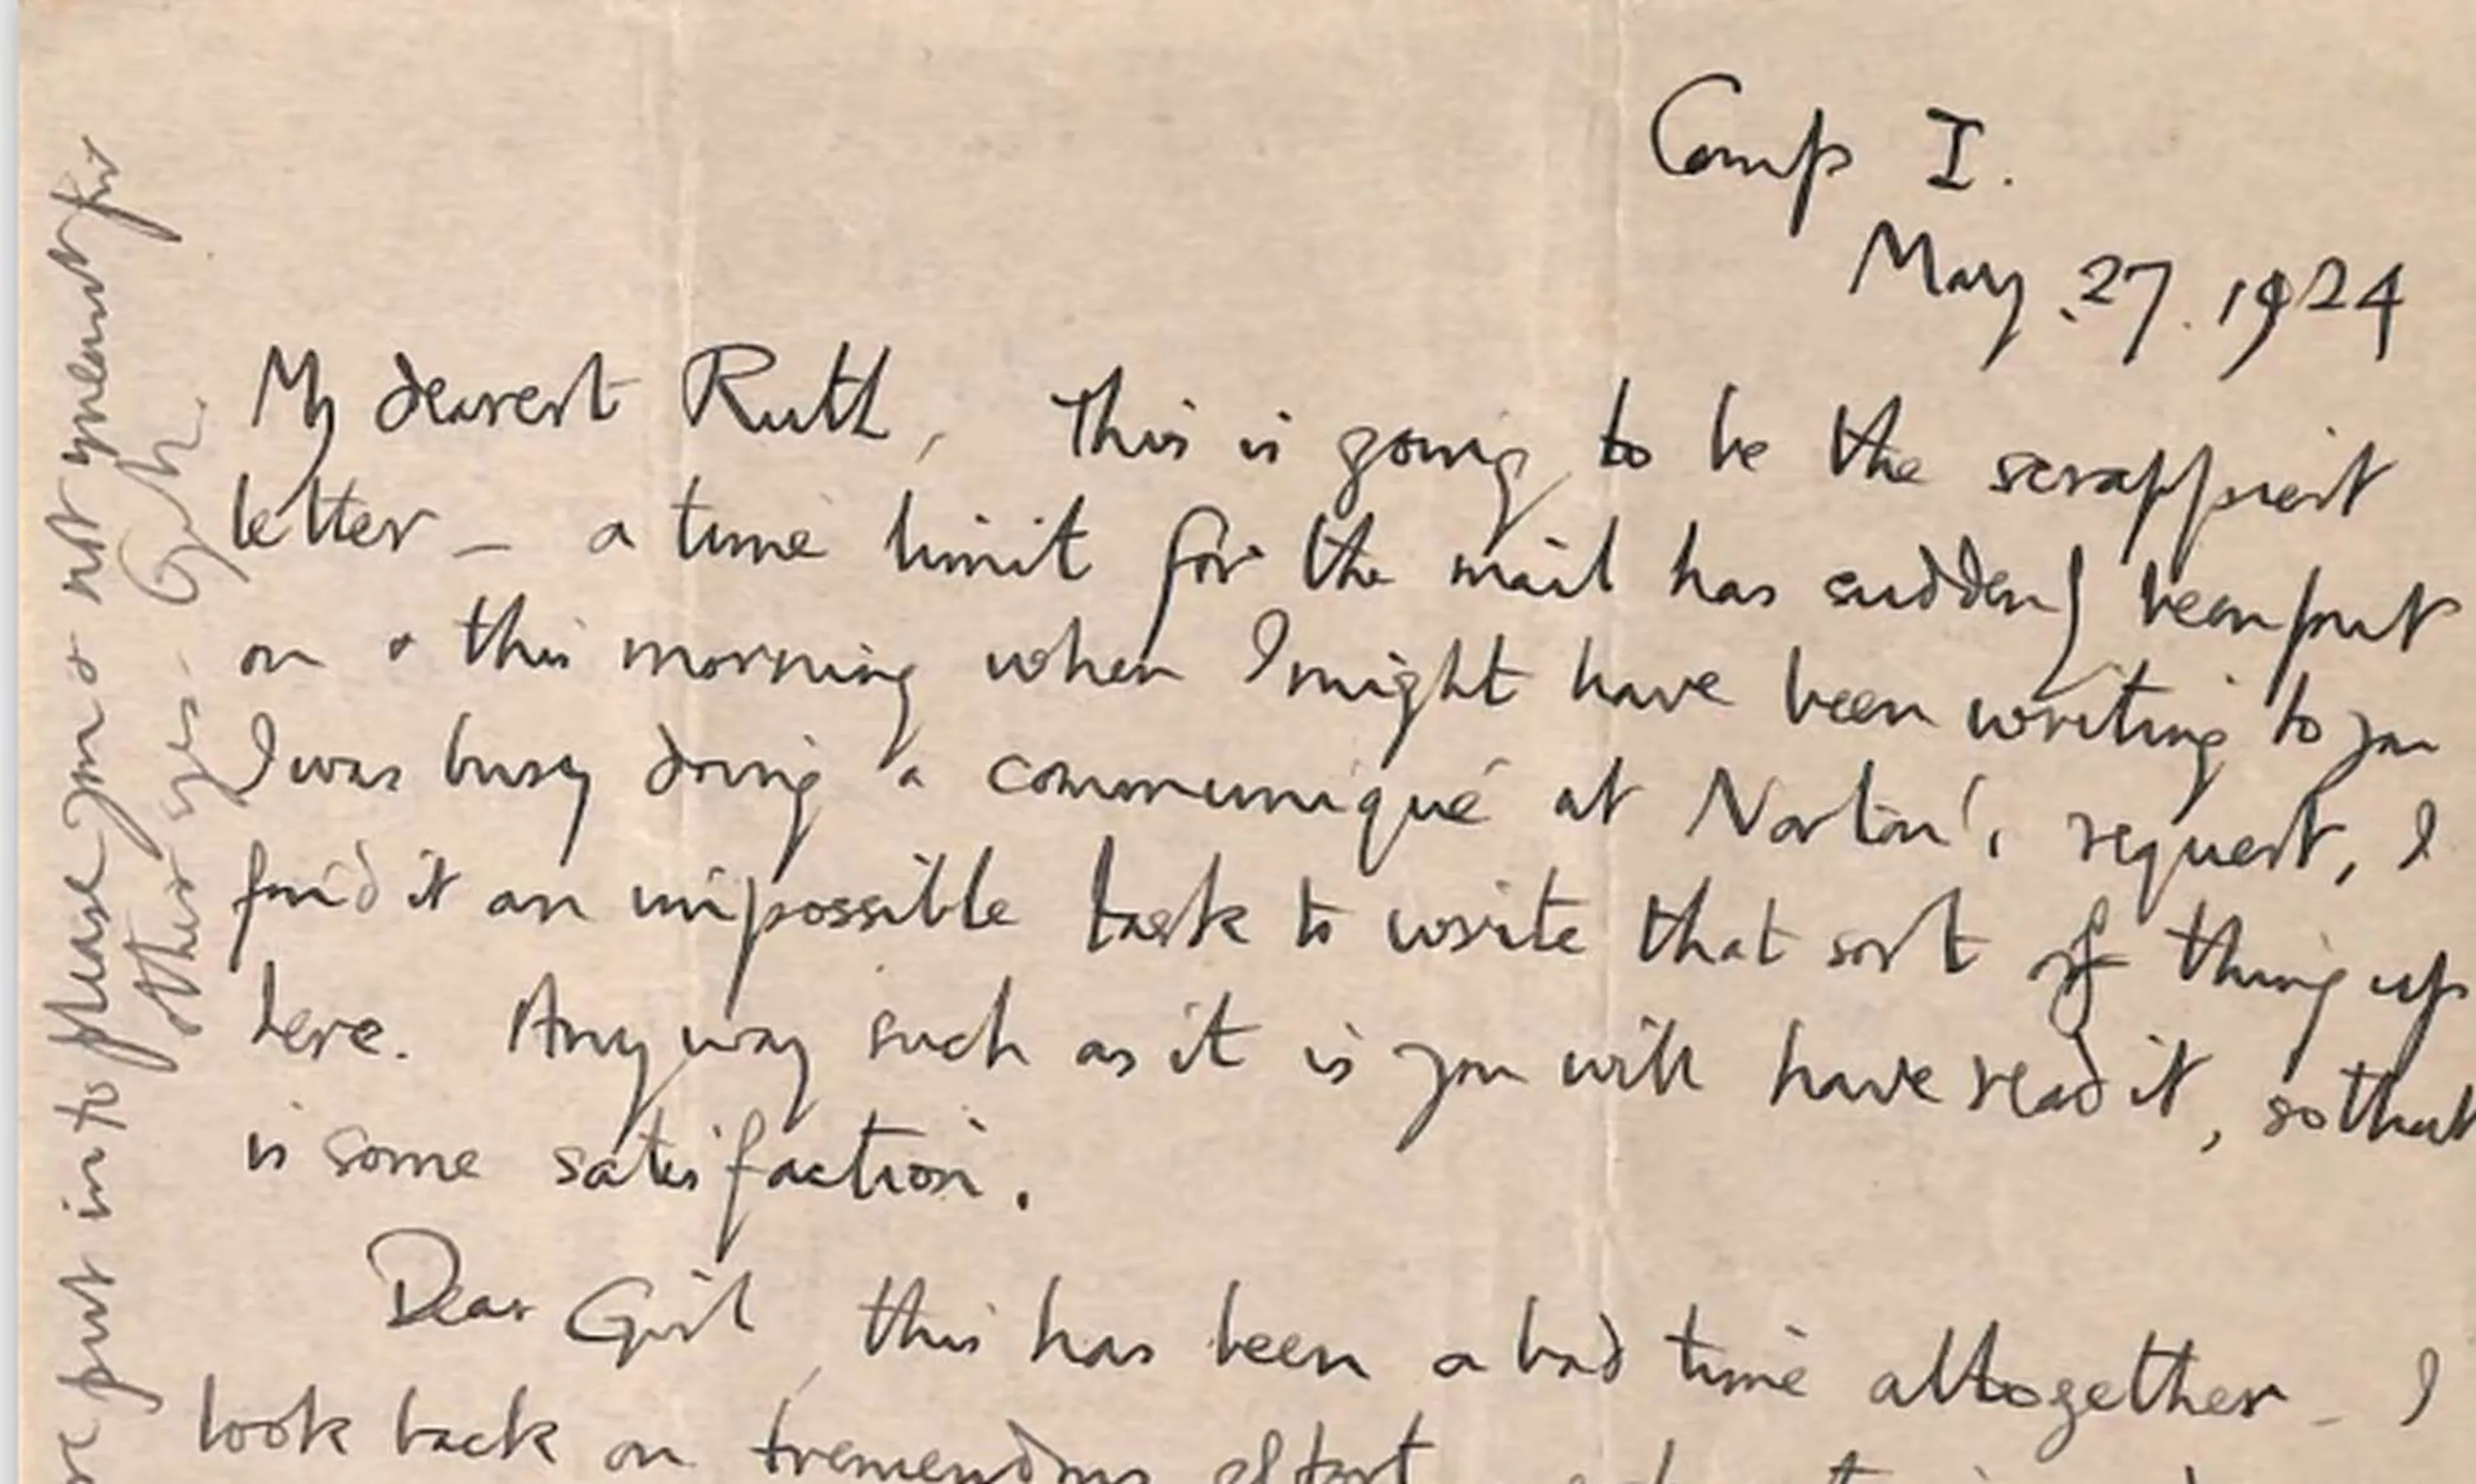 Camp I.
May 27. 1924
My dearest Ruth, This is going to be the scrappiest
letter – a time limit for the mail has suddenly been put
on & this morning when I might have been writing to you
I was busy doing a communiqué at Norton's request, I
find it an impossible task to write that sort of thing up
here. Any way such as it is you will have read it, so that
is some satisfaction.
Dear Girl, this has been a bad time altogether – I
look back on tremendous effort
put in to please you & not meant for
others yes. G.M.